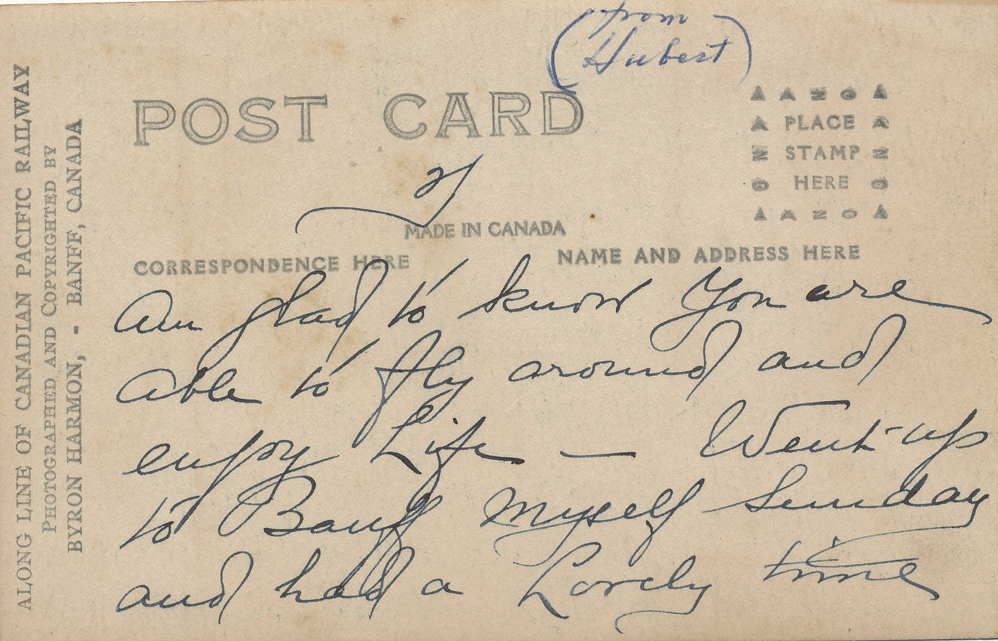 (from -
Hubert)
POST CARD
AZO
PLACE
STAMP
HERE
AZO
2
MADE IN CANADA
CORRESPONDENCE HERE
NAME AND ADDRESS HERE
Am glad to know You are
able to fly around and
enjoy Life — Went up
to Banff myself Sunday
and had a Lovely time
ALONG LINE OF CANADIAN PACIFIC RAILWAY
PHOTOGRAPHED AND COPYRIGHTED BY
BYRON HARMON, - BANFF, CANADA